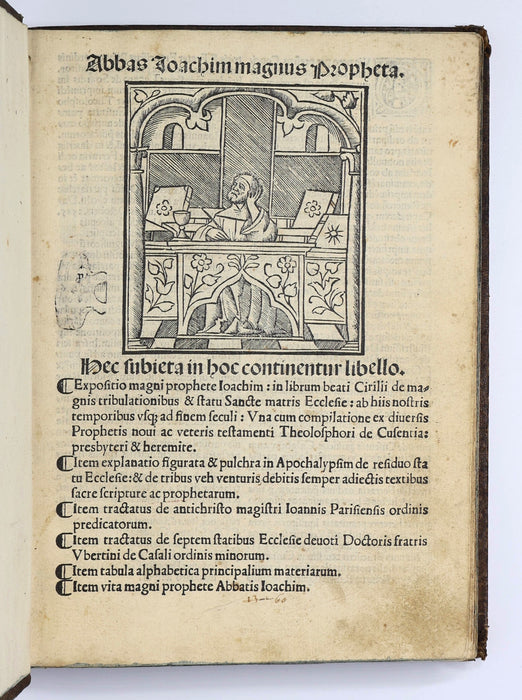 Abbas Joachim magnus Propheta.
Hec subiecta in hoc continentur libello.
Expositio magni prophete Ioachim: in librum beati Cirilli de ma-
gnis tribulationibus & statu Sancte matris Ecclesie: ab hiis nostris
temporibus vsq; ad finem seculi: Vna cum compilatione ex diuersis
Prophetis noui ac veteris testamenti Theolosphori de Cusentia:
presbyteri & heremite.
Item explanatio figurata & pulchra in Apochalypsim de residuo sta
tu Ecclesie: & de tribus veh venturis debitis semper adiectis textibus
sacre scripture ac prophetarum.
Item tractatus de antichristo magistri Ioannis Parisiensis ordinis
predicatorum.
Item tractatus de septem statibus Ecclesie deuoti Doctoris fratris
Vbertini de Casali ordinis minorum.
Item tabula alphabetica principalium materiarum.
Item vita magni prophete Abbatis Ioachim.